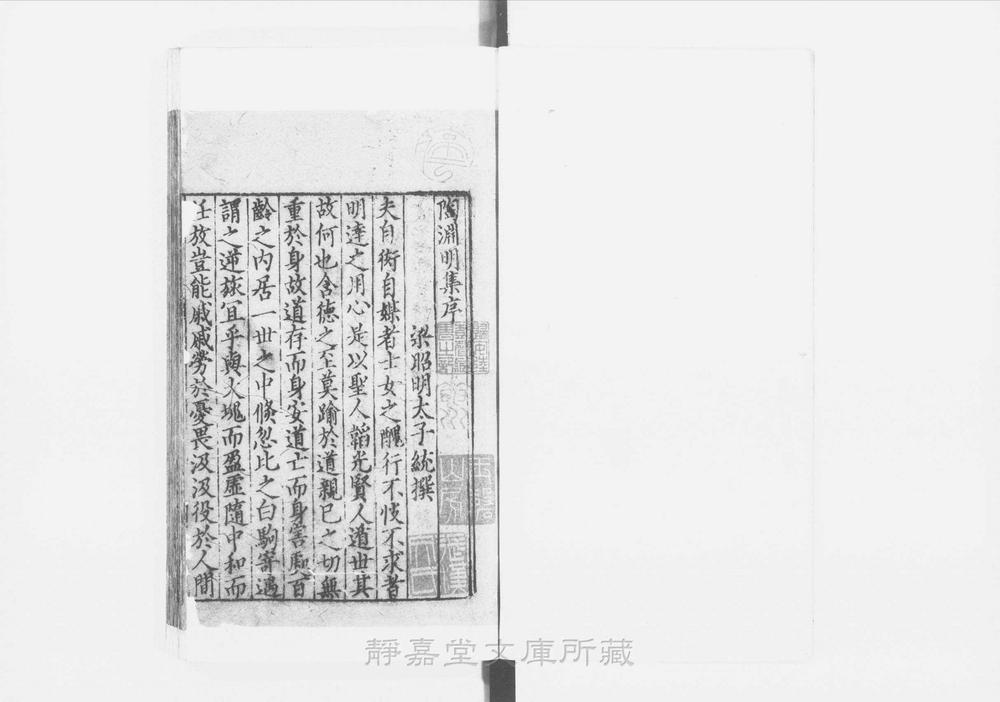 陶淵明集序
梁昭明太子統撰
夫自衒自媒者士女之醜行不忮不求者
明達之用心是以聖人韜光賢人遁世其
故何也含德之至莫踰於道親己之切無
重於身故道存而身安道亡而身害處百
齡之內居一世之中倏忽比之白駒寄遇
謂之逆旅宜乎與大塊而盈虛隨中和而
任放豈能戚戚勞於憂畏汲汲役於人間
靜嘉堂文庫所藏